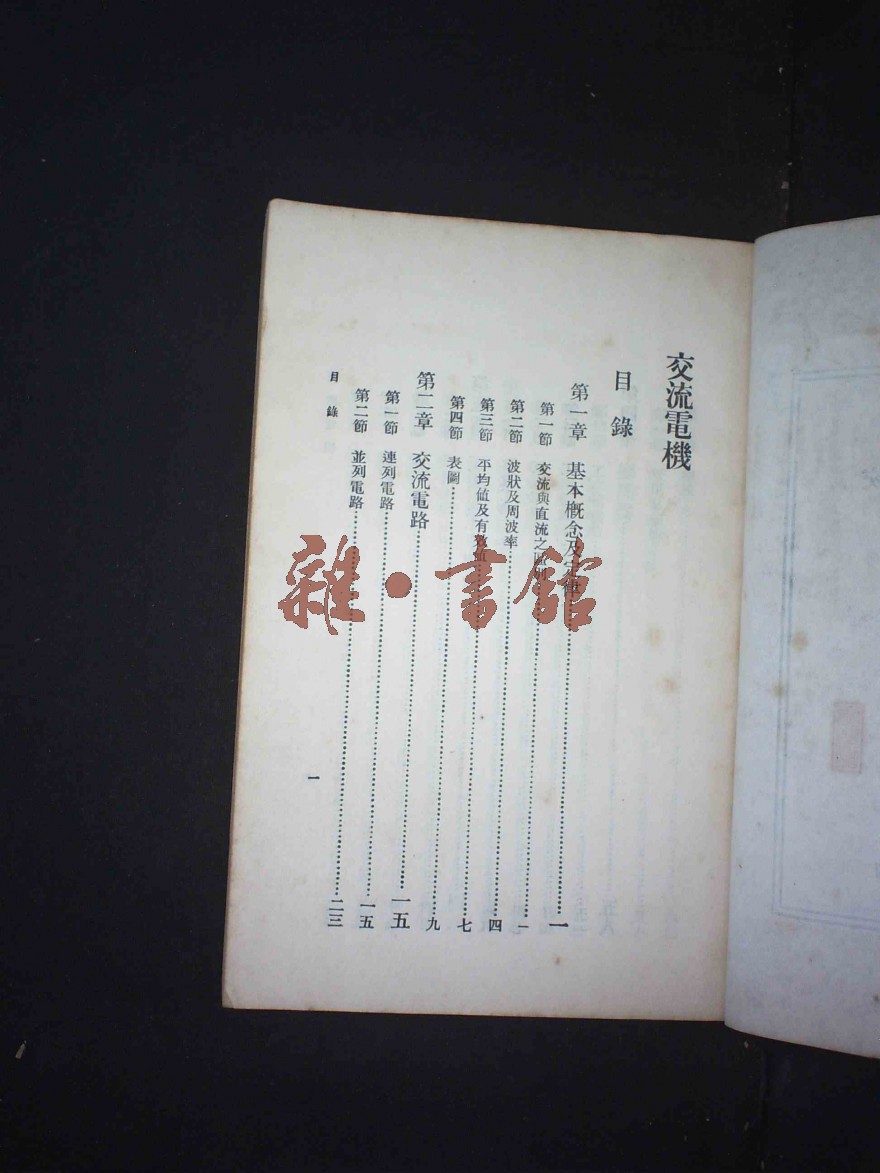 交流電機
目錄
第一章 基本概念及定律……一
第一節 交流與直流之區別……一
第二節 波狀及周波率……四
第三節 平均值及有效值……七
第四節 表圖……九
第二章 交流電路……一五
第一節 連列電路……一五
第二節 並列電路……二三
目錄 一
雜·書館